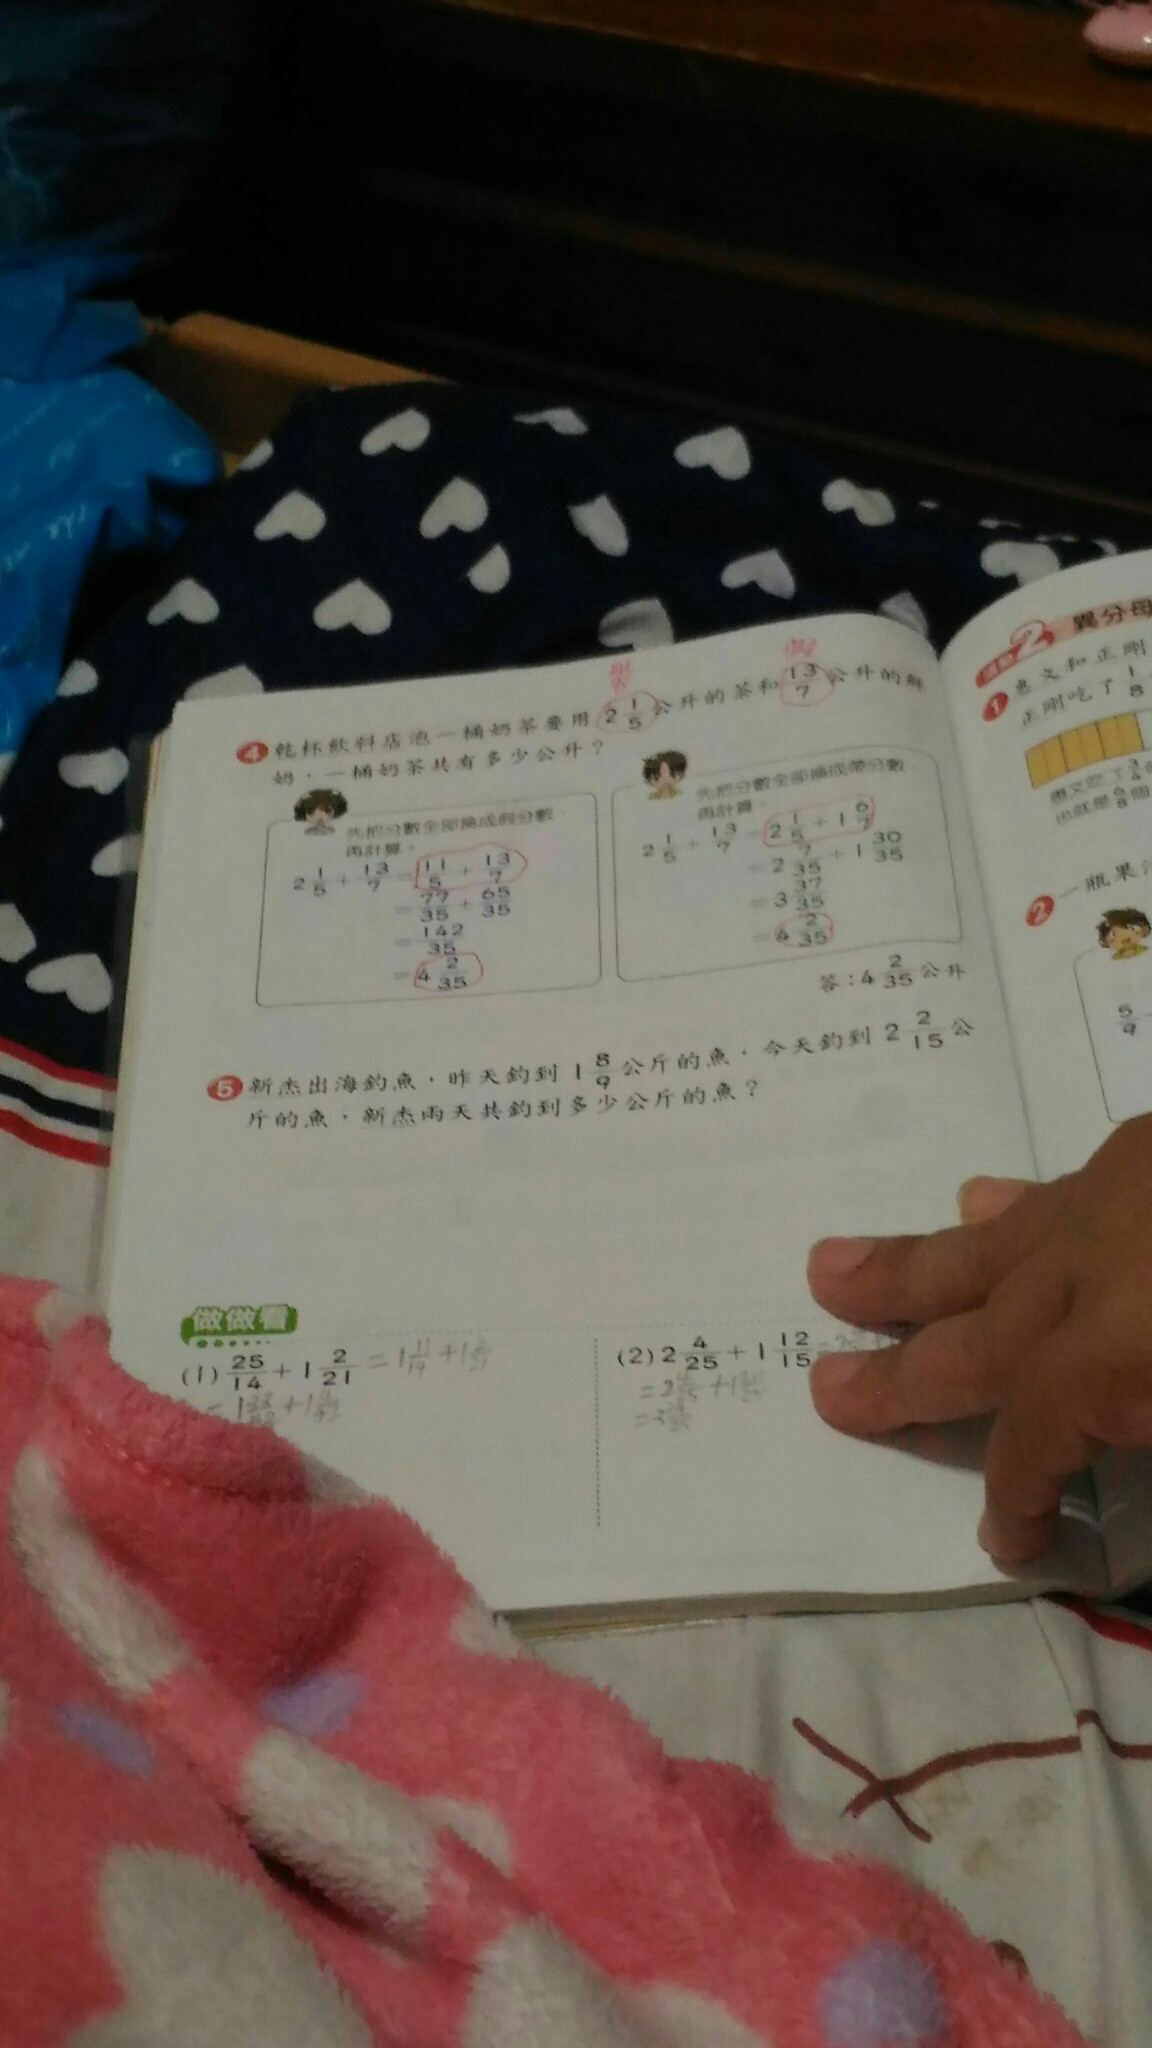 4 乾杯飲料店泡一桶奶茶要用 2 1/5 公升的茶和 13/7 公升的鮮
奶,一桶奶茶共有多少公升?
先把分數全部換成假分數,
再計算。
2 1/5 + 13/7 = 11/5 + 13/7
= 77/35 + 65/35
= 142/35
= 4 2/35
先把分數全部換成帶分數,
再計算。
2 1/5 + 13/7 = 2 1/5 + 1 6/7
= 2 7/35 + 1 30/35
= 3 37/35
= 4 2/35
答:4 2/35 公升
5 新杰出海釣魚,昨天釣到 1 8/9 公斤的魚,今天釣到 2 2/15 公
斤的魚,新杰兩天共釣到多少公斤的魚?
做做看
(1) 25/14 + 1 2/21 = 1 11/14 + 1 2/21
(2) 2 4/25 + 1 12/15
2 異分母
1 惠文和正剛
正剛吃了 1/8
惠文吃了
也就是 6/8 個
2 一瓶果汁
5/9